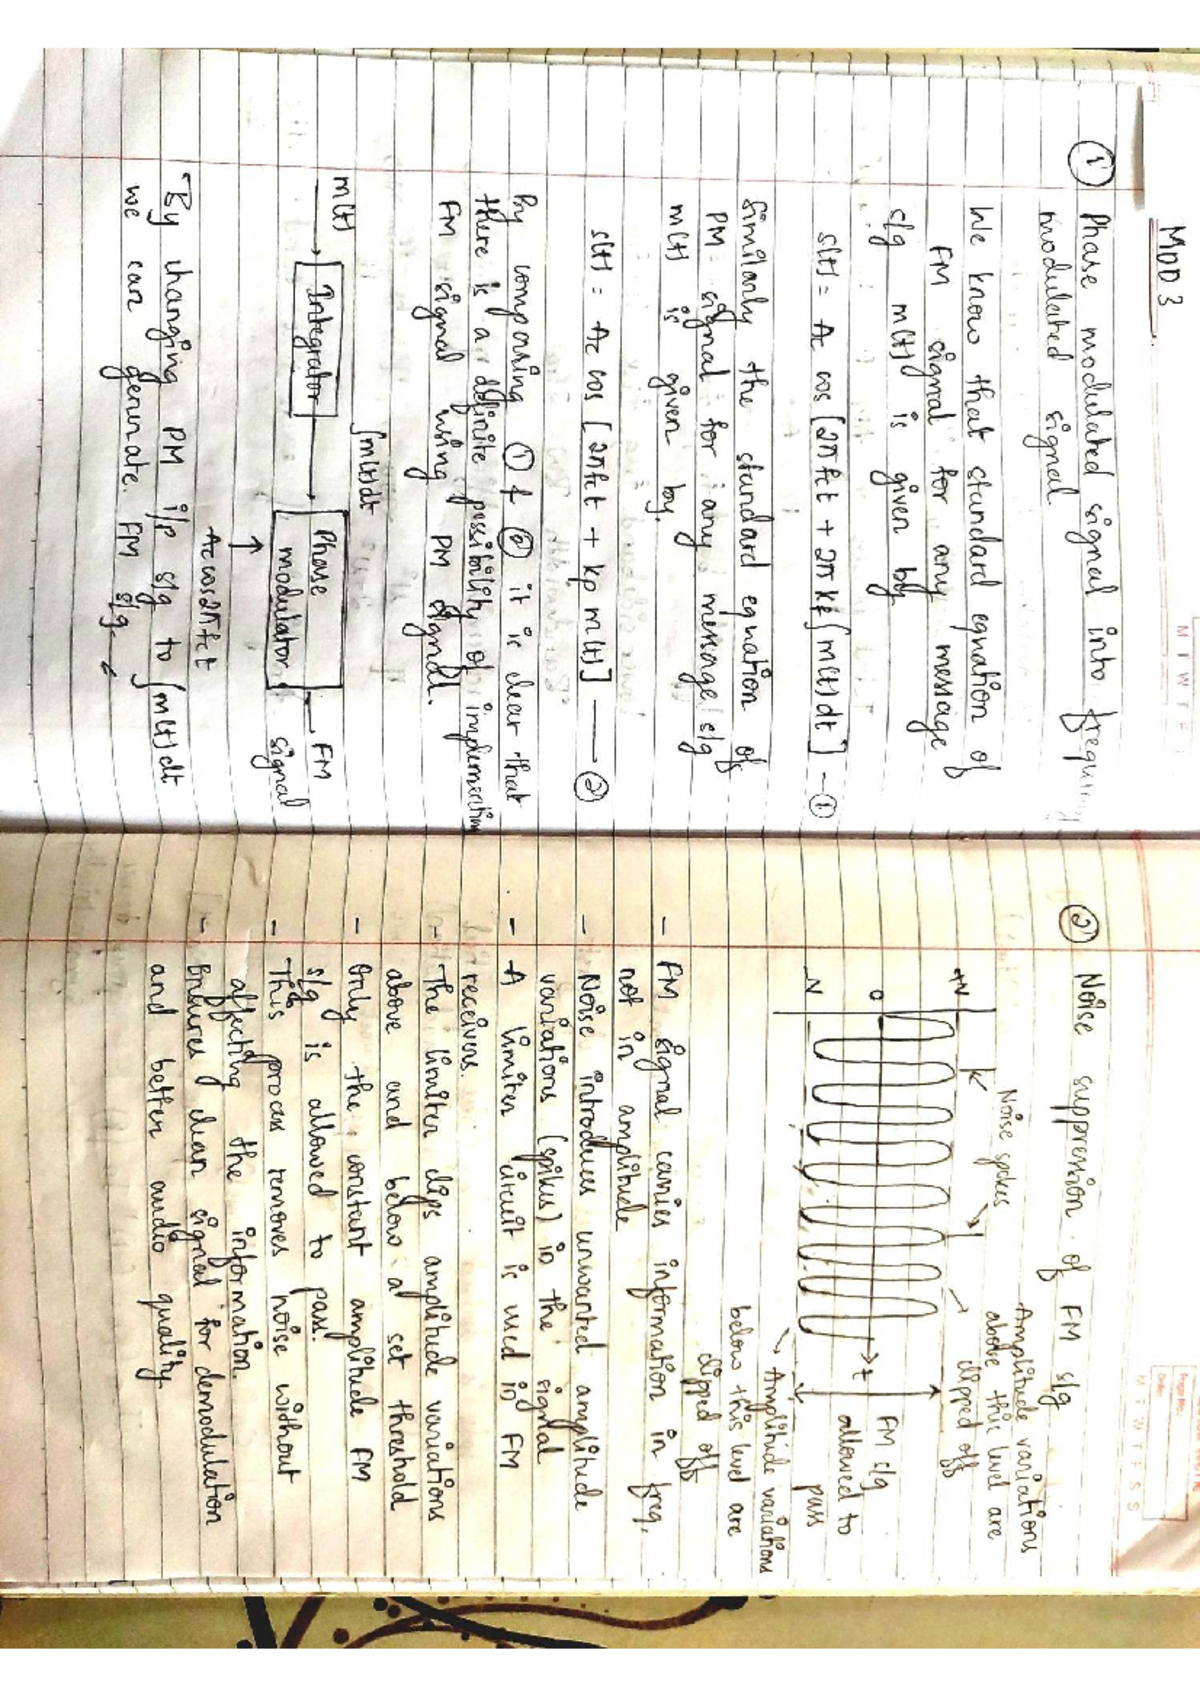 MOD 3
M T W T F
① Phase modulated signal into frequency
modulated signal.
We know that standard equation of
FM signal for any message
s/g m(t) is given by
s(t) = Ac cos [2πfct + 2π kf ∫m(t)dt] - ①
Similarly the standard equation of
PM signal for any message s/g
m(t) is given by.
s(t) = Ac cos [2πfct + kp m(t)] — ②
By comparing ① & ② it is clear that
there is a definite possibility of implementing
FM signal using PM signal.
m(t)
Integrator
∫m(t)dt
Phase
modulator
FM
signal
Ac cos2πfct
"By changing PM i/p s/g to ∫m(t)dt
we can generate FM s/g.
M T W T F S S
② Noise suppression of FM s/g
Noise spikes
Amplitude variations
above this level are
clipped off
+V
0
-V
t
FM s/g
allowed to
pass
Amplitude variations
below this level are
clipped off
- FM signal carries information in freq,
not in amplitude
- Noise introduces unwanted amplitude
variations (spikes) in the signal
- A limiter circuit is used in FM
receivers.
- The limiter clips amplitude variations
above and below a set threshold
- Only the constant amplitude FM
s/g is allowed to pass.
- This process removes noise without
affecting the information.
- Ensures clean signal for demodulation
and better audio quality